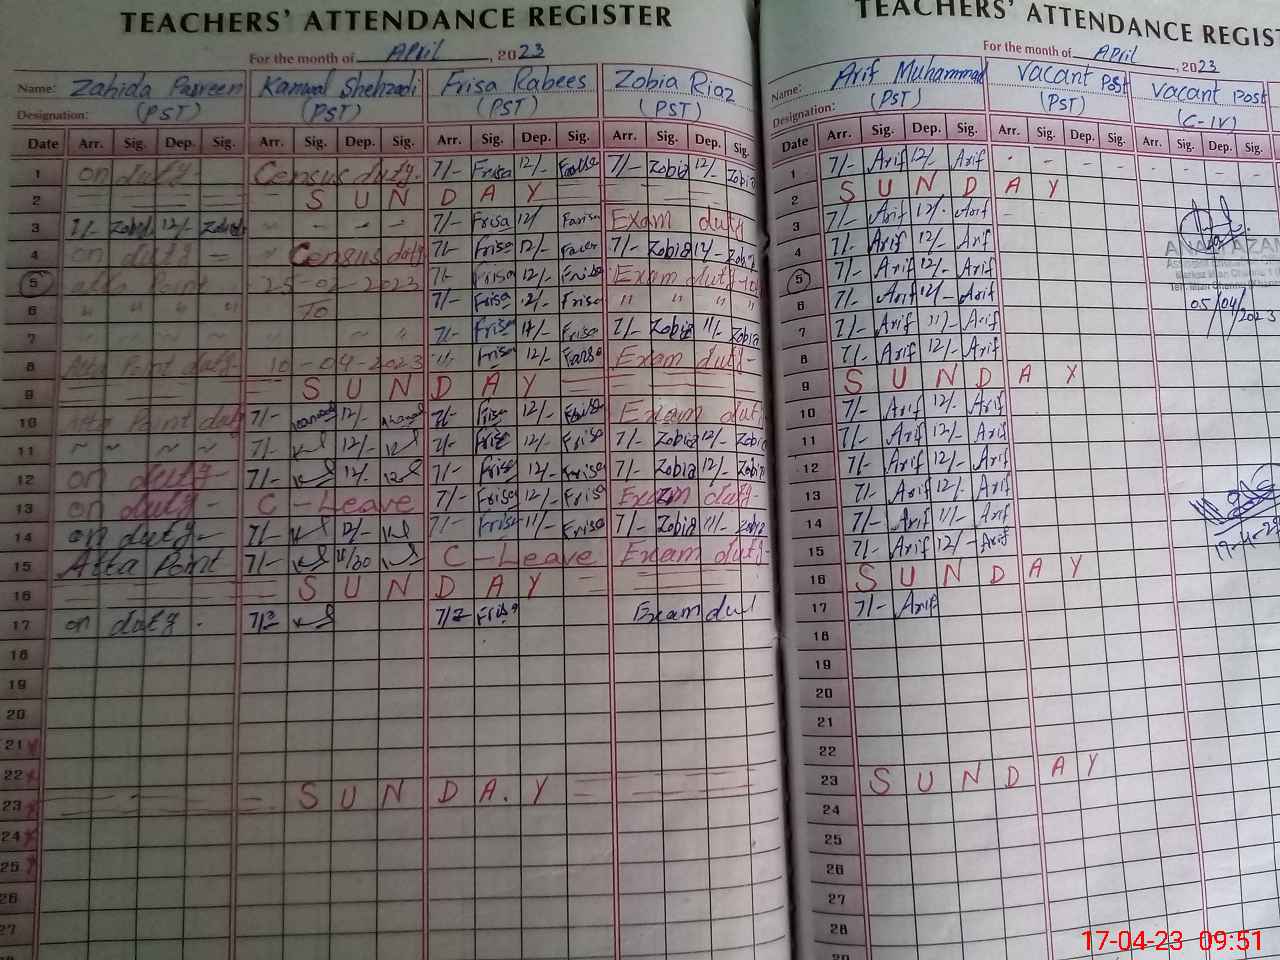 TEACHERS' ATTENDANCE REGISTER
For the month of April, 2023
Name: Zahida Parveen Kanwal Shehzadi Frisa Rabees Zobia Riaz
Designation: (PST) (PST) (PST) (PST)
Date Arr. Sig. Dep. Sig. Arr. Sig. Dep. Sig. Arr. Sig. Dep. Sig. Arr. Sig. Dep. Sig.
1 on duty Census duty 7/- Frisa 12/- 7/- Zobia 12/- Zobia
2 S U N D A Y
3 7/- 12/- 7/- Frisa 12/ Exam duty
4 on duty = Census duty 7/- Frisa 12/- 7/- Zobia 12/- Zobia
5 atta Point 25-02-2023 7/- Frisa 12/- Frisa Exam duty
6 " " " " To 7/- Frisa 12/- Frisa " " " "
7 7/- Frisa Frisa 7/- Zobia 11/- Zobia
8 Atta Point duty 10-04-2023 Frisa 12/- Exam duty-
9 S U N D A Y
10 Atta Point duty 7/- 12/- 7/- Frisa 12/- Frisa Exam duty
11 ~ ~ ~ ~ 7/- 12/- 7/- Frisa 12/- Frisa 7/- Zobia 12/- Zobia
12 on duty- 7/- 12/- 7/- Frisa 12/- Frisa 7/- Zobia 12/- Zobia
13 on duty - C-Leave 7/- Frisa 12/- Frisa Exam duty-
14 on duty- 7/- 12/- 7/- Frisa 11/- Frisa 7/- Zobia 11/- Zobia
15 Atta Point 7/- 11/30 C-Leave Exam duty-
16 S U N D A Y
17 on duty - Frisa Exam dut
18
19
20
21
22
23 S U N D A. Y
24
25
26
27
TEACHERS' ATTENDANCE REGIST
For the month of April, 2023
Name: Arif Muhammad Vacant Post Vacant Post
Designation: (PST) (PST) (C-IV)
Date Arr. Sig. Dep. Sig. Arr. Sig. Dep. Sig. Arr. Sig. Dep. Sig.
1 7/- Arif 12/- Arif - - - - - - - -
2 S U N D A Y
3 7/- Arif 12/- Arif
4 7/- Arif 12/- Arif
5 7/- Arif 12/- Arif
6 7/- Arif 12/- Arif 05/04/2023
7 7/- Arif 11/- Arif
8 7/- Arif 12/- Arif
9 S U N D A Y
10 7/- Arif 12/- Arif
11 7/- Arif 12/- Arif
12 7/- Arif 12/- Arif
13 7/- Arif 12/- Arif
14 7/- Arif 11/- Arif
15 7/- Arif 12/- Arif
16 S U N D A Y
17 7/- Arif
18
19
20
21
22
23 S U N D A Y
24
25
26
27
28
17-04-23 09:51